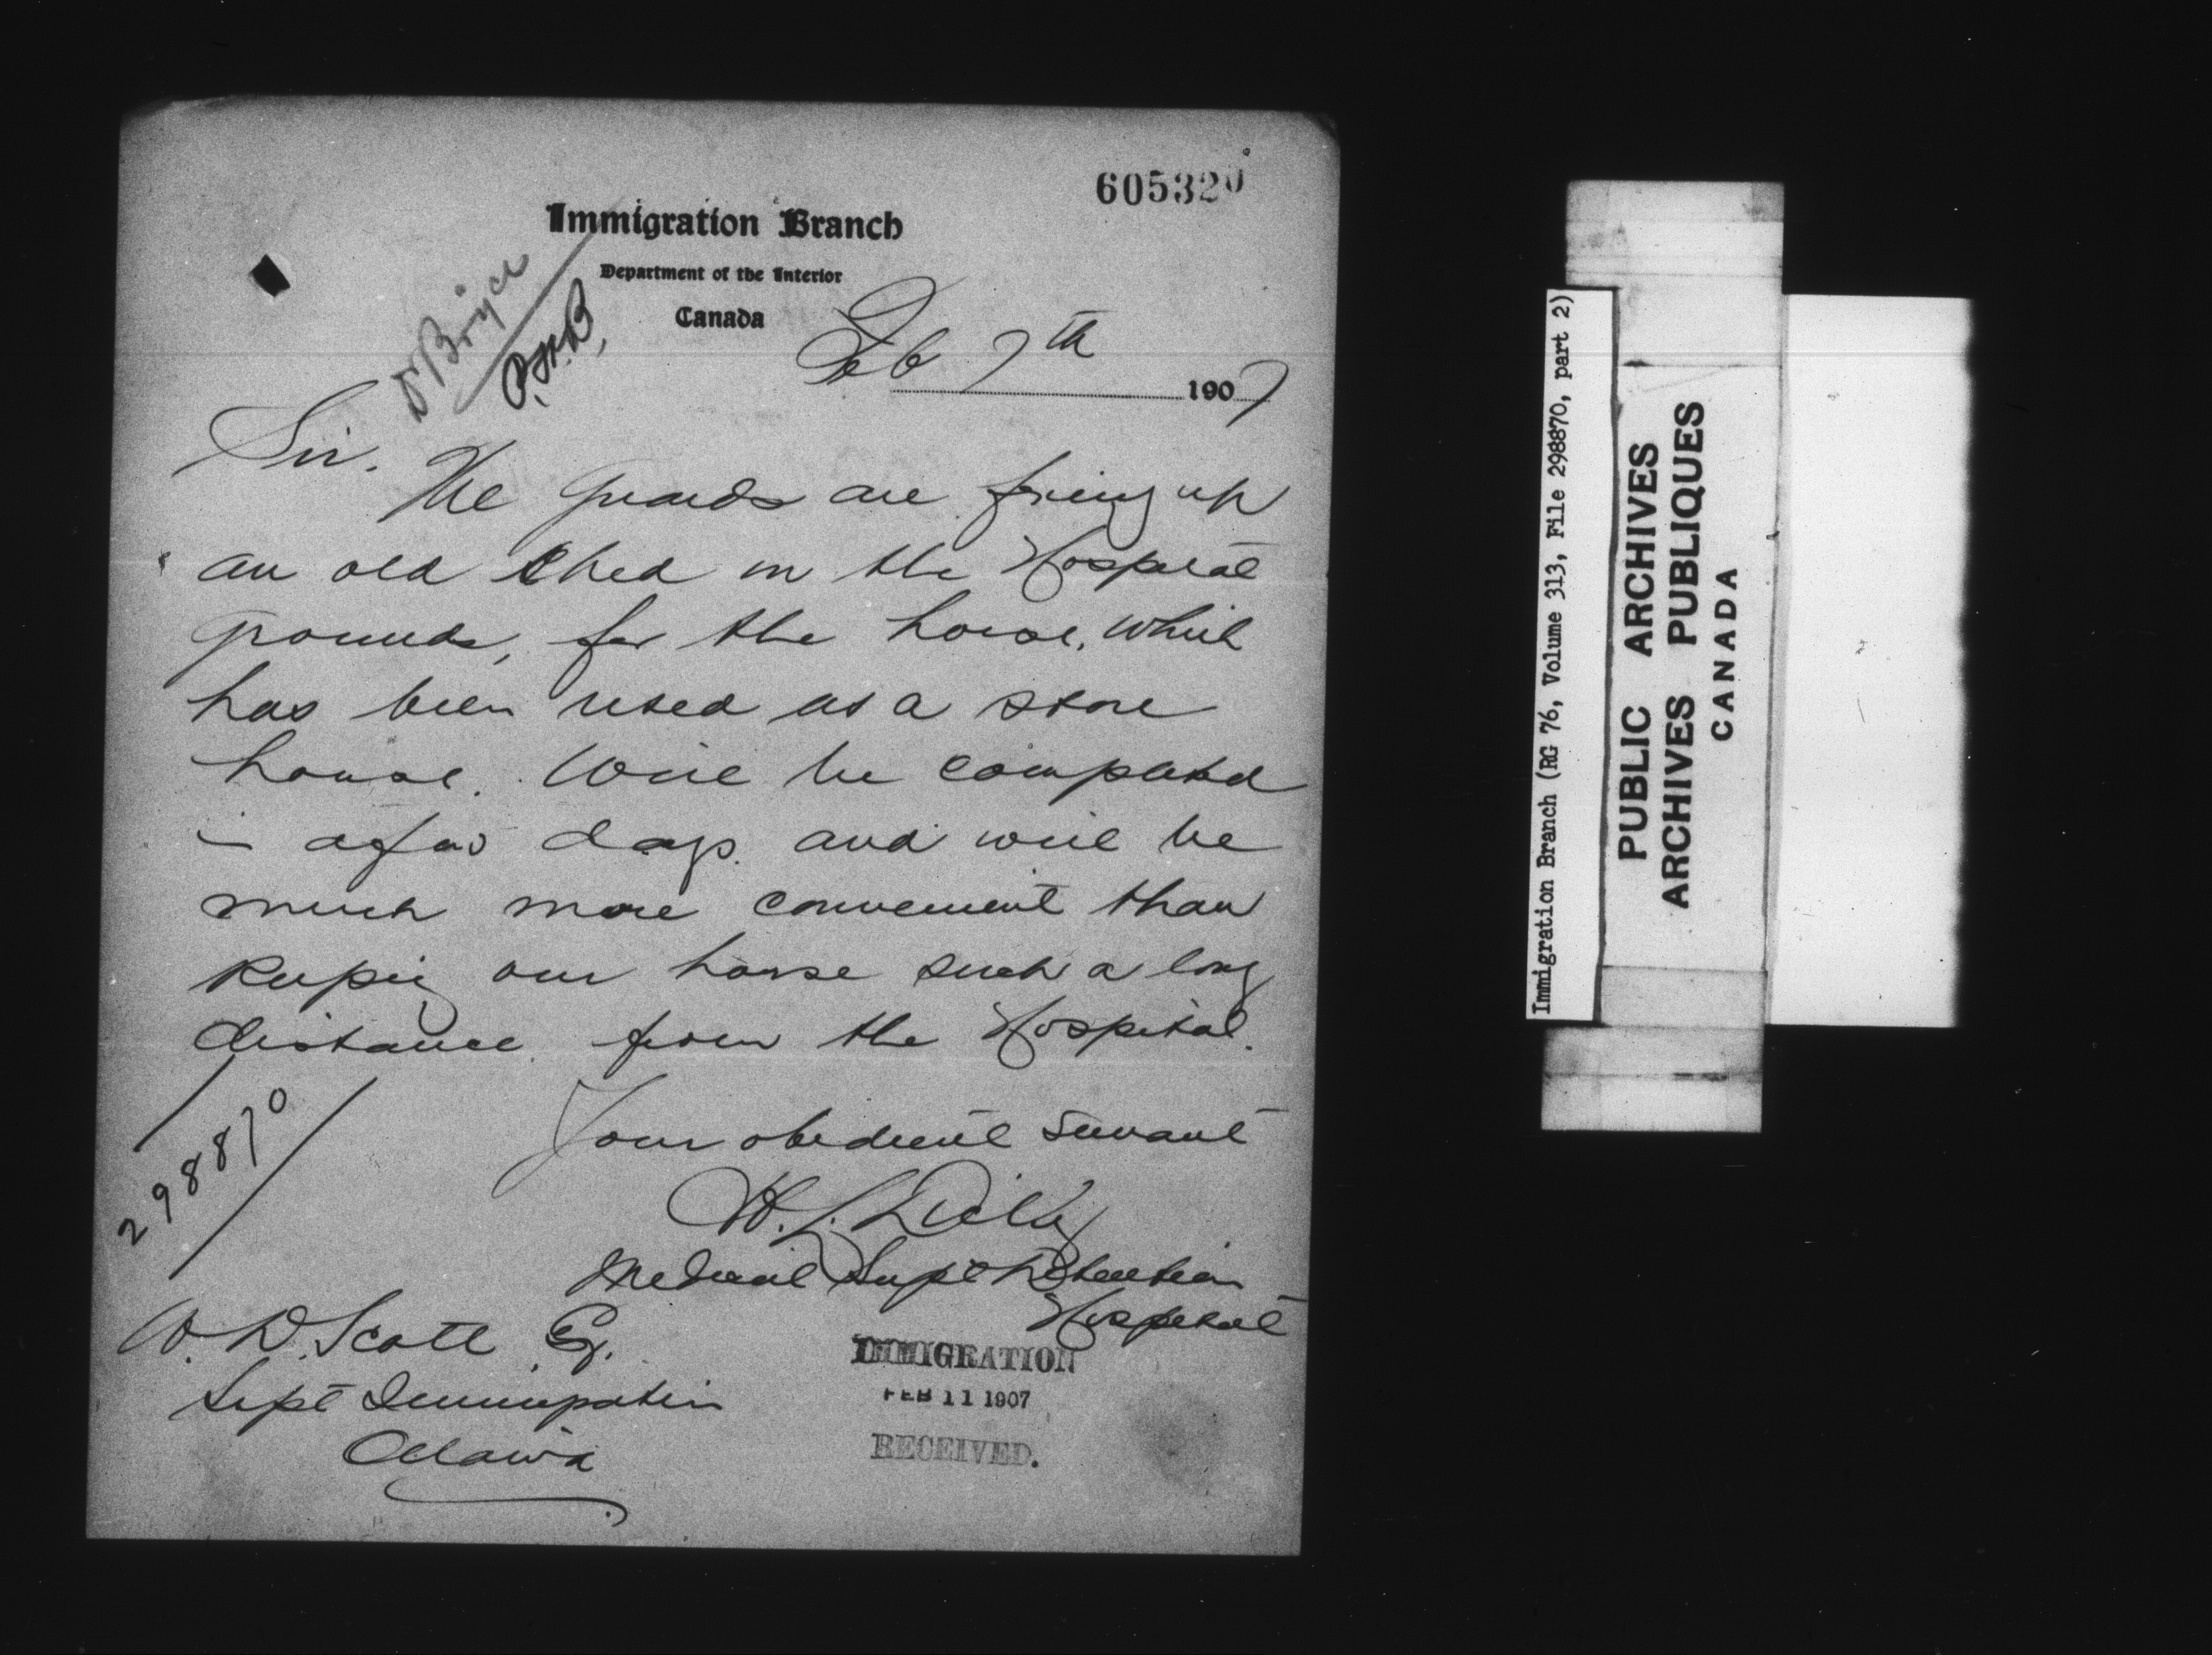 605320
Immigration Branch
Department of the Interior
Canada
Dr Bryce
P.H.B.
Feb 7th 1907
Sir.
The guards are fixing up
an old shed in the Hospital
grounds, for the horse, which
has been used as a store
house. Will be completed
in a few days. and will be
much more convenient than
keeping our horse such a long
distance from the Hospital.
Your obedient servant
Medical Supt Detention
Hospital
298870
W. D. Scott Esq.
Supt Immigration
Ottawa
IMMIGRATION
FEB 11 1907
RECEIVED.
Immigration Branch (RG 76, Volume 313, File 298870, part 2)
PUBLIC ARCHIVES
ARCHIVES PUBLIQUES
CANADA